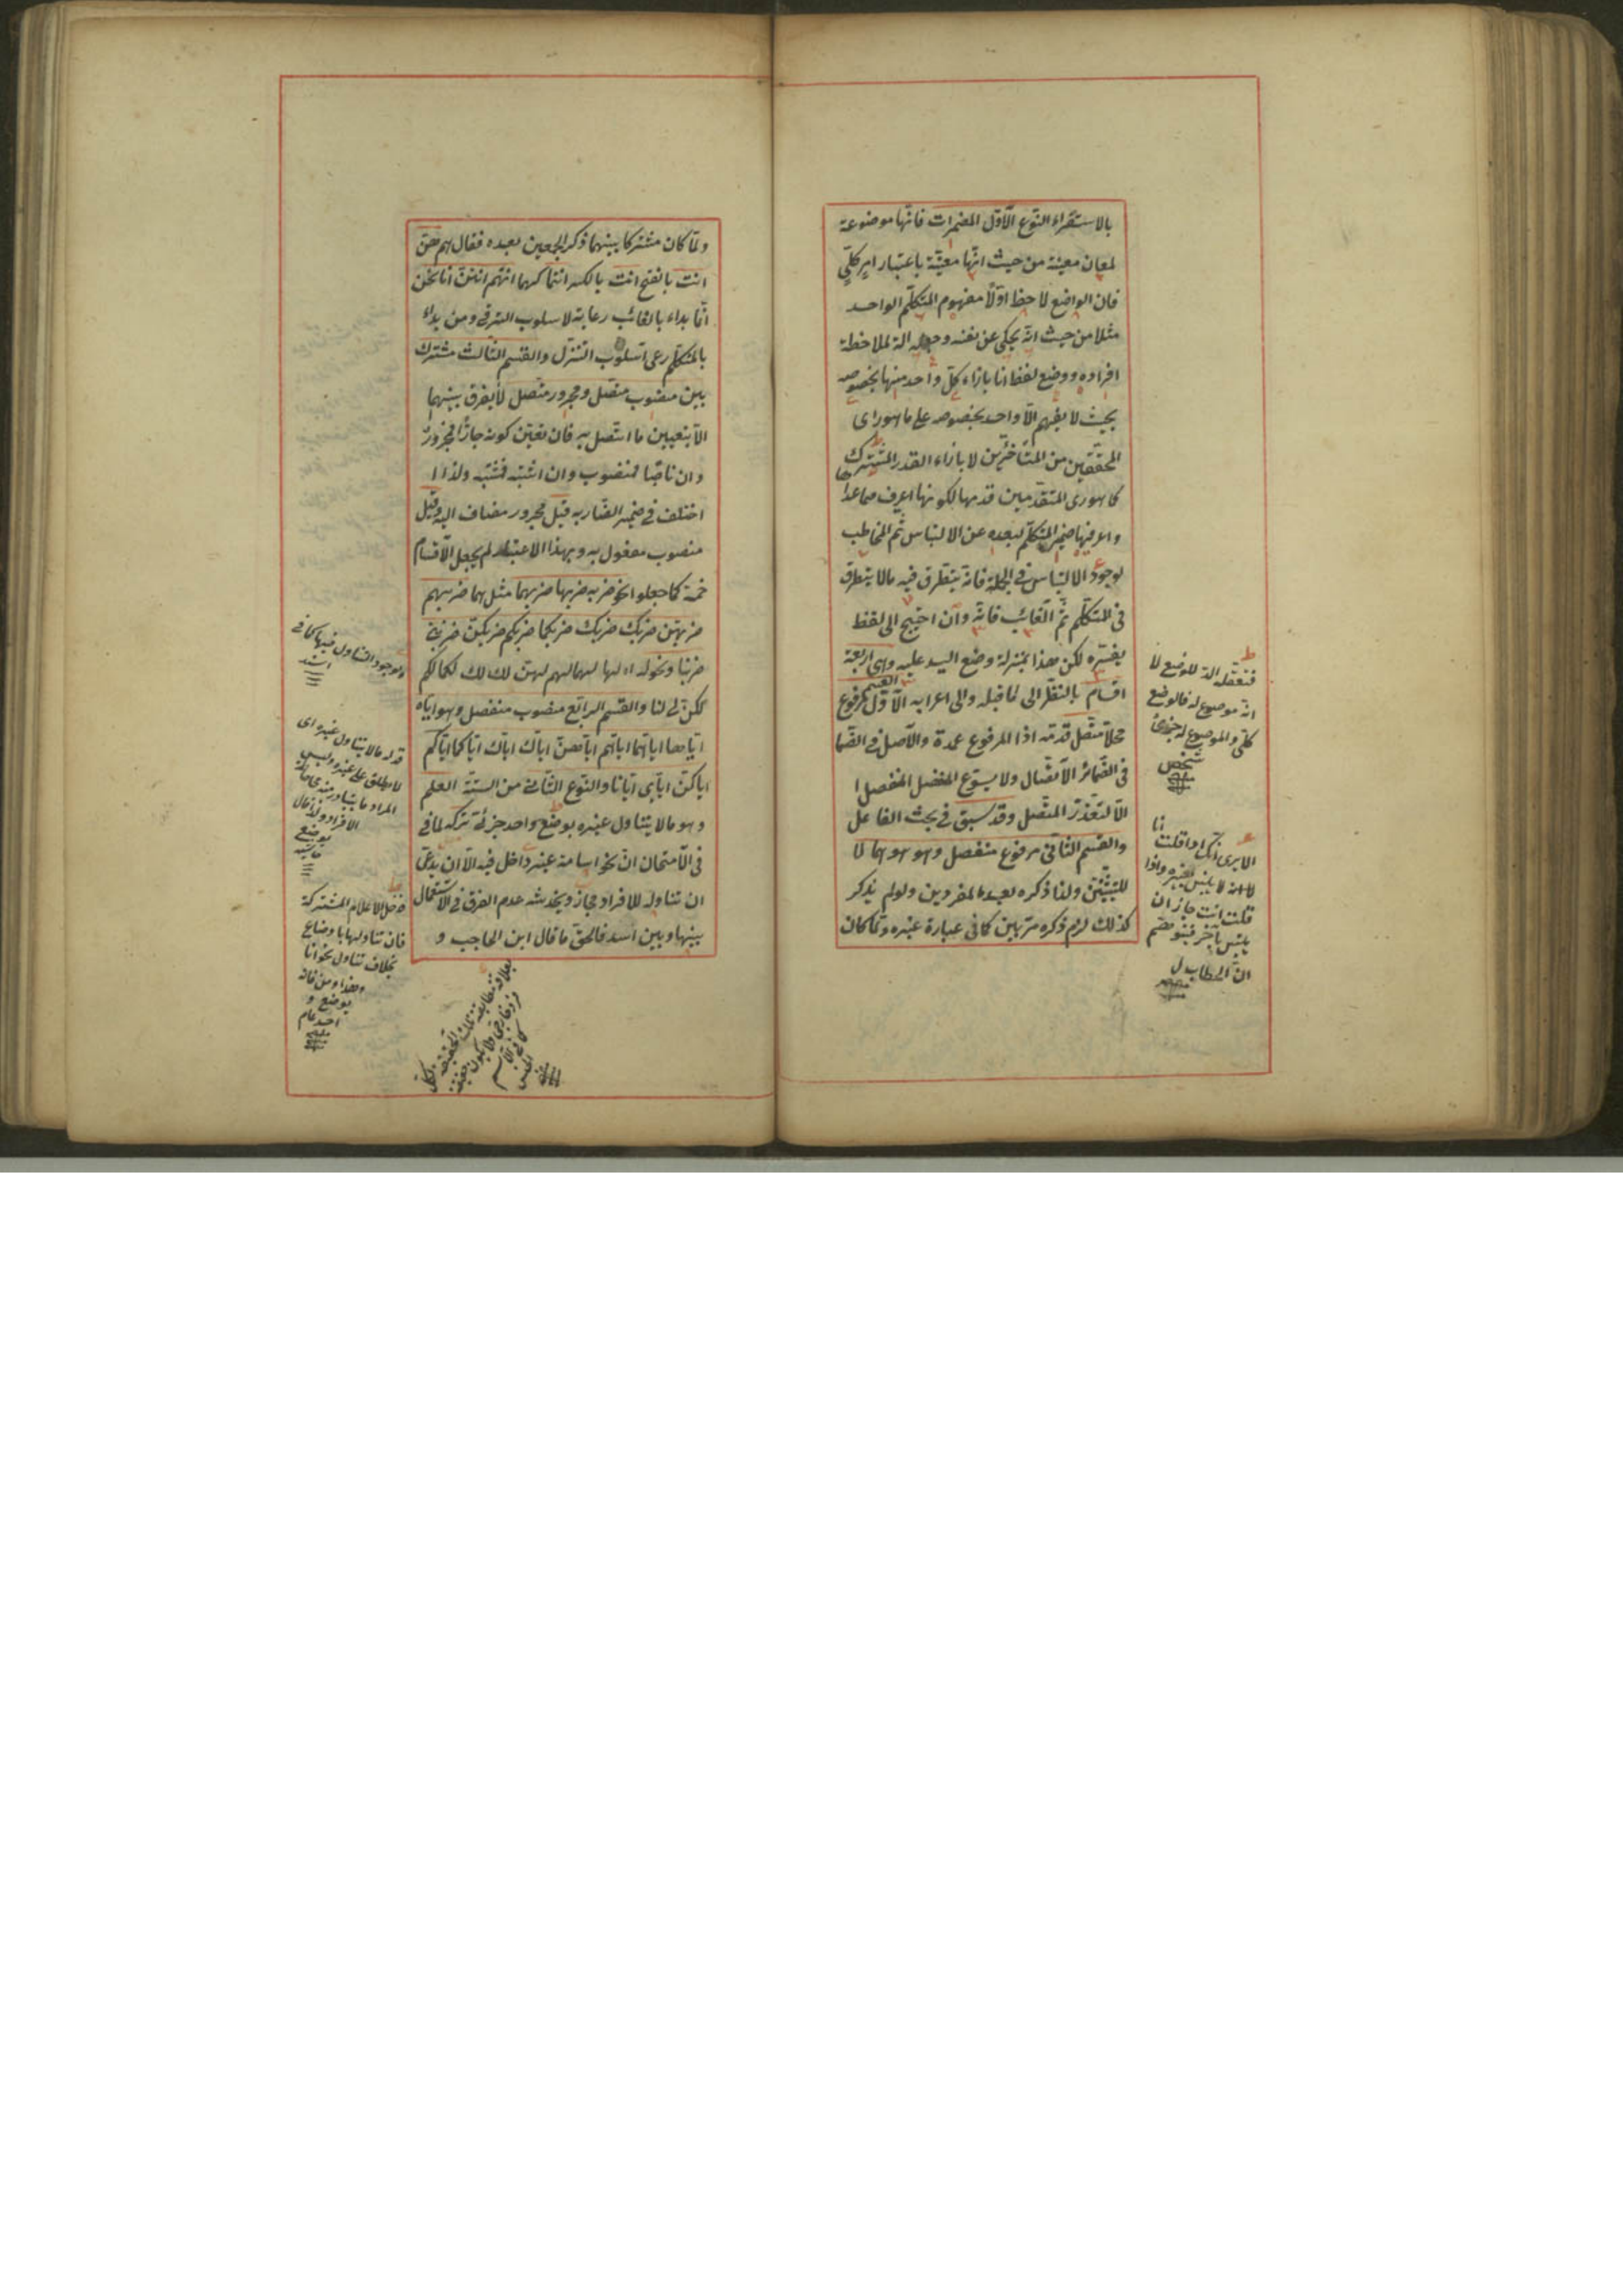 بالاستقراء النوع الاول المضمرات فانها موضوعة
لمعان معينة من حيث انها معينة باعتبار امر كلي
فان الواضع لاحظ اولا مفهوم المتكلم الواحد
مثلا من حيث انه يحكى عن نفسه وجعله الة لملاحظة
افراده ووضع لفظ انا بازاء كل واحد منها بخصوصه
بحيث لا يفهم الا واحد بخصوصه على ما هو راى
المحققين من المتأخرين لا بازاء القدر المشترك
كما هو راى المتقدمين قدمها لكونها اعرف مما عداها
واعرفها ضمير المتكلم لبعده عن الالتباس ثم المخاطب
لوجود الالتباس في الجملة فانه يتطرق فيه مالا يتطرق
في المتكلم ثم الغائب فانه وان احتيج الى لفظ
يفسره لكن هذا بمنزلة وضع اليد عليه وهى اربعة
اقسام بالنظر الى ما قبله والى اعرابه القسم الاول مرفوع
محلا متصل قدمه اذ المرفوع عمدة والاصل في
في الضمائر الاتصال ولا يسوغ المنفصل
الا لتعذر المتصل وقد سبق في بحث الفاعل
والقسم الثاني مرفوع منفصل وهو هو هى هما
للتثنيتين ولذا ذكره بعد المفردين ولو لم يذكر
كذلك لزم ذكره مرتين كما في عبارة غيره ولما كان
فتعقله الة للوضع لا
انه موضوع له فالوضع
كلي والموضوع له جزئى
شخص
الا يرى انك اذا قلت انا
لا يلتبس بغيره واذا
قلت انت جاز ان
يلتبس بآخر فيتوهم
ان الخطاب ل
ولما كان مشتركا بينهما ذكر الجمعين بعده فقال هم هن
انت بالفتح انت بالكسر انتما كهما انتم انتن انا نحن
انما بداء بالغائب رعاية لاسلوب الترقى ومن بداء
بالمتكلم رعى اسلوب التنزل والقسم الثالث مشترك
بين منصوب متصل ومجرور متصل لا يفرق بينهما
الا بتعيين ما اتصل به فان تعين كونه جارا فمجرور
وان ناصبا فمنصوب وان اشتبه فمشتبه ولذا
اختلف في ضمير الضاربه فقيل مجرور مضاف اليه وقيل
منصوب مفعول به وبهذا الاعتبار لم يجعل الاقسام
خمسة كما جعلوا نحو ضربه ضربها ضربهما مثل هما ضربهم
ضربهن ضربك ضربك ضربكما ضربكم ضربكن ضربنى
ضربنا ونحو له لها لهما لهم لهن لك لك لكما لكم
لكن لي لنا والقسم الرابع منصوب منفصل وهو اياه
اياها اياهما اياهم اياهن اياك اياك اياكما اياكم
اياكن اياى ايانا والنوع الثاني من الستة العلم
وهو مالا يتناول غيره بوضع واحد جزئه تركه لما في
في الامتحان ان نحو اسامة عينه داخل فيه الا ان يدعى
ان تناوله للافراد مجاز ويخدشه عدم الفرق في الاستعمال
بينها وبين اسد فالحق ما قال ابن الحاجب و
ولوجود التناول فيها كما في
اسد
قوله مالا يتناول غيره اى
لا يطلق على غيره وليس
بوضع
فدخل الاعلام المشتركة
فان تناولها باوضاع
بخلاف تناول نحو انا
وهذا ومن فانه
بوضع و
احد عام